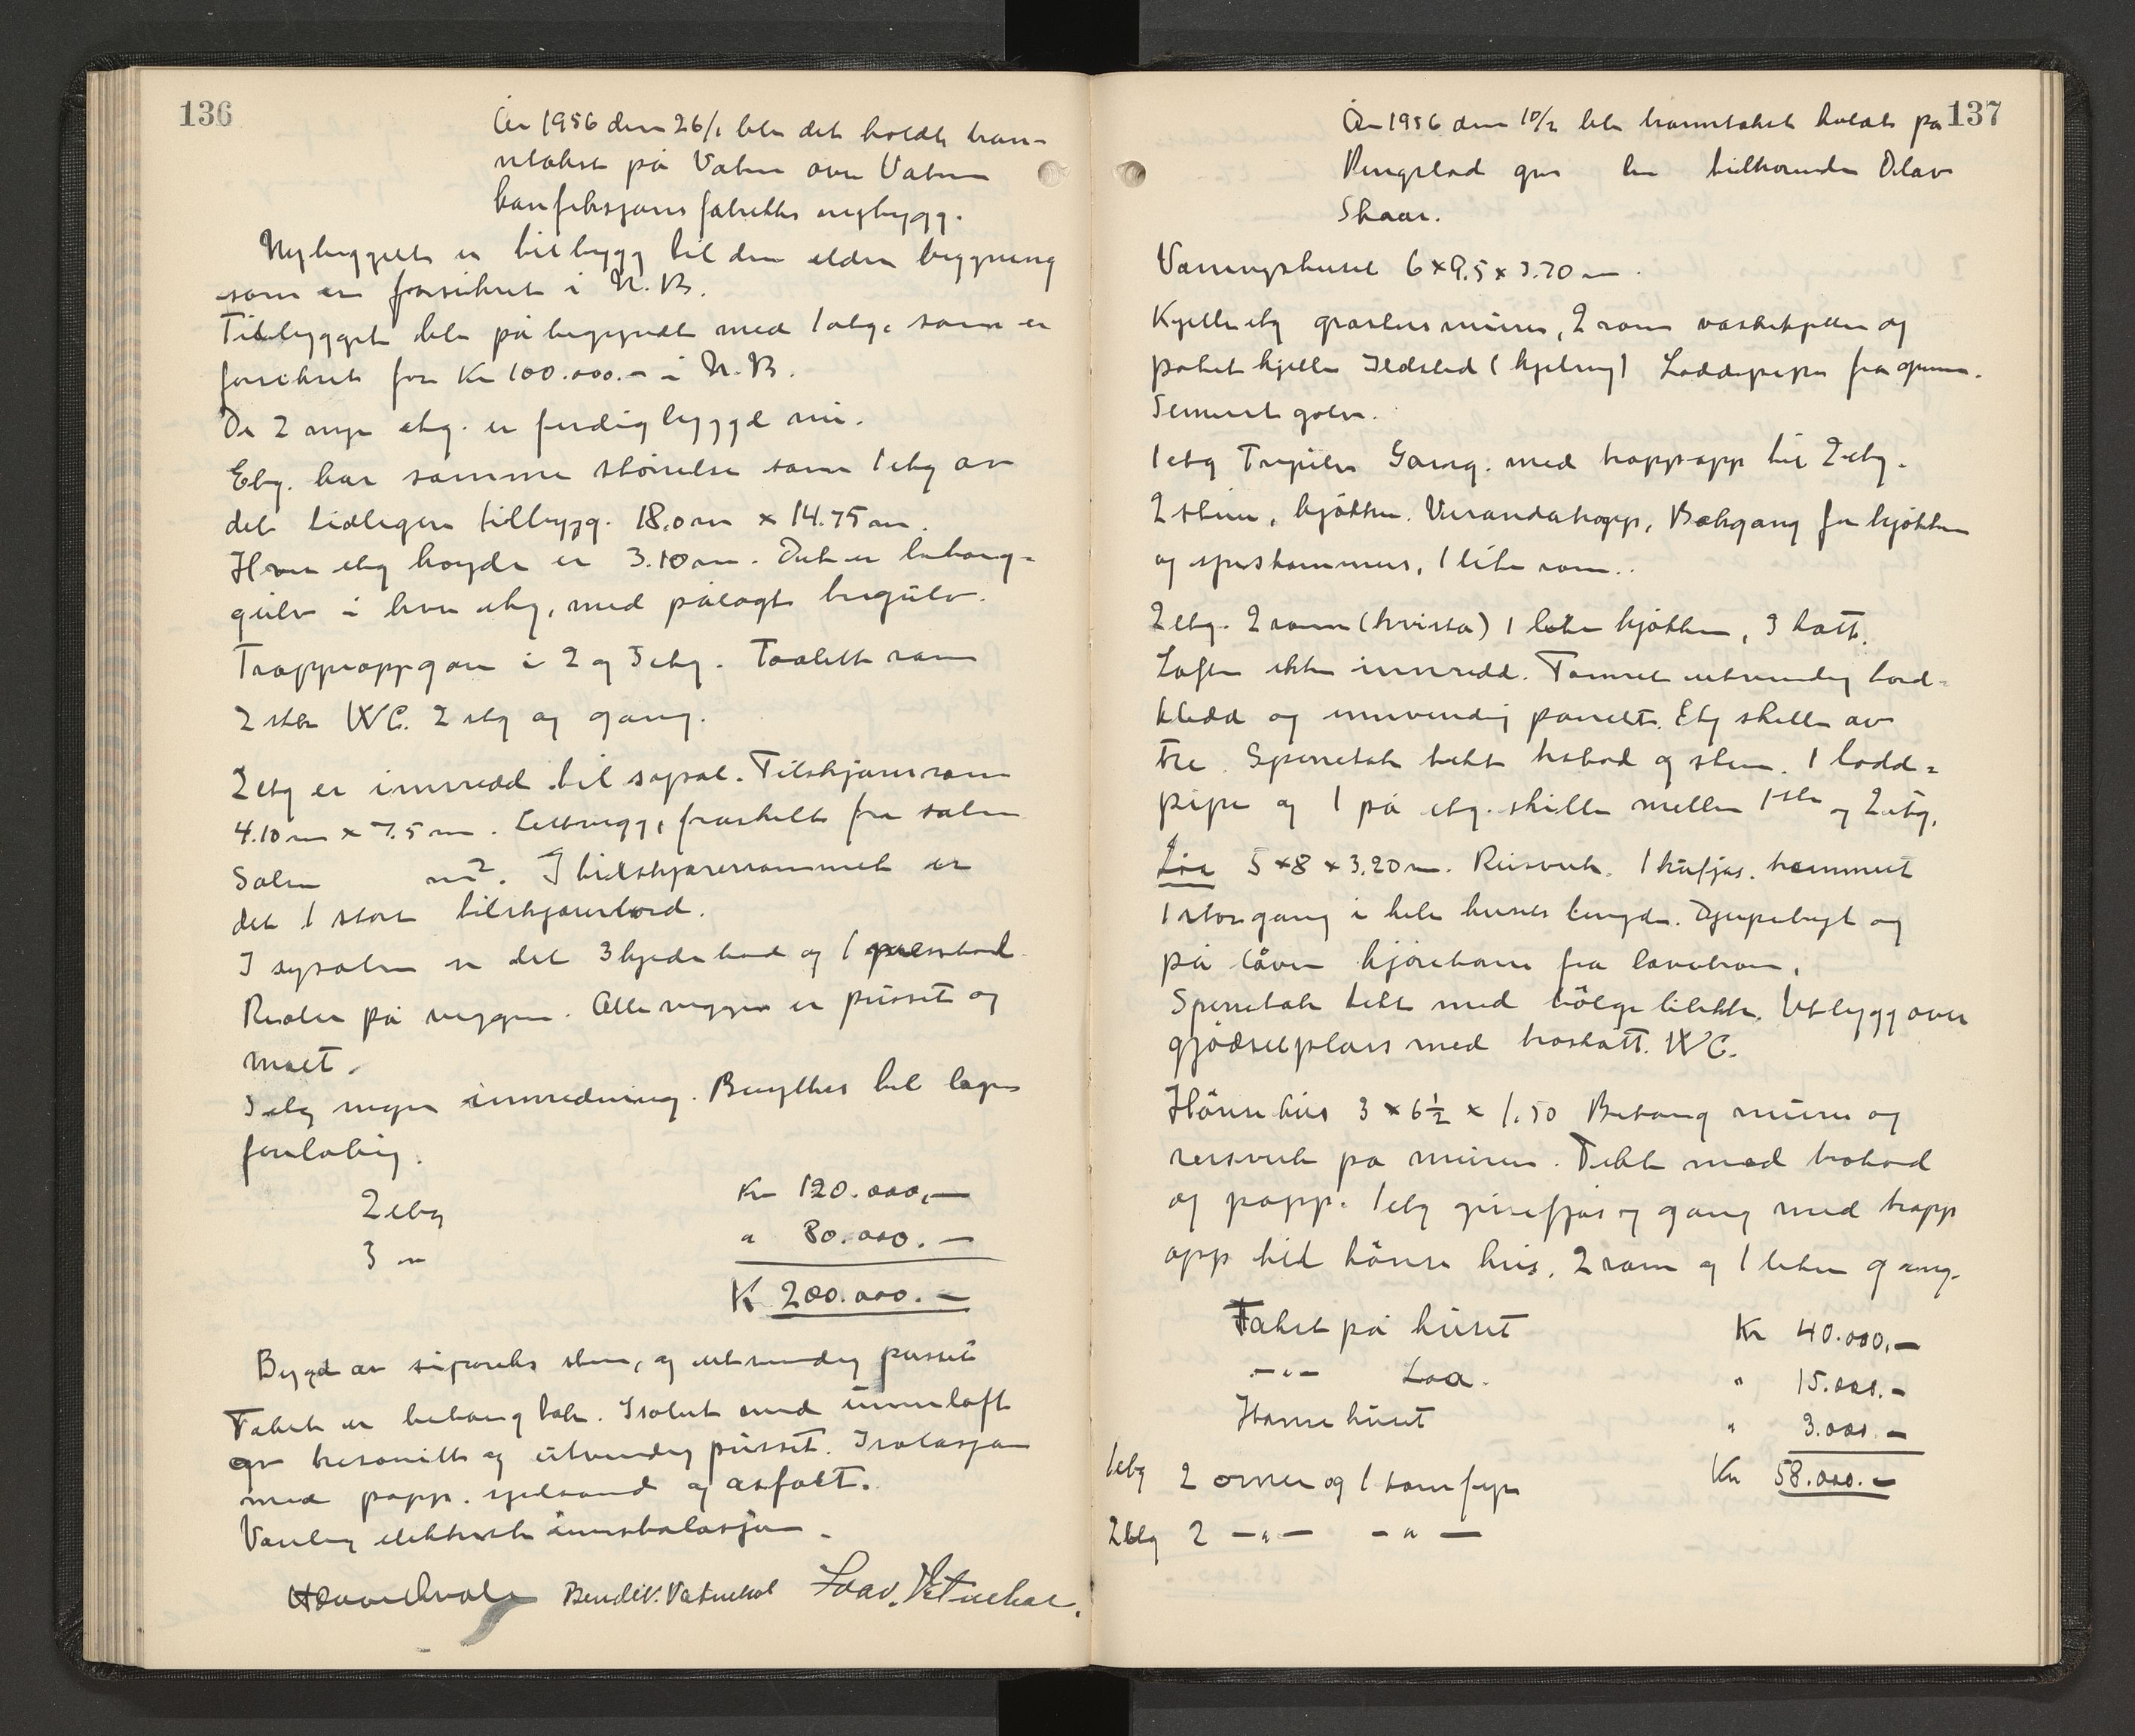 136
År 1956 den 26/1 ble det holdt bran-
ntakst på Vatne over Vatne
konfeksjons fabrikks nybygg.
Nybygget er tilbygg til den eldre byggning
som er forsikret i N.B.
Tilbygget ble påbegyndt med 1 etg. som er
forsikret for Kr 100.000.- i N.B.
De 2 nye etg. er ferdig byggd nu.
Etg. har samme størrelse som 1 etg av
det tidligere tilbygg. 18.0 m x 14.75 m.
Hver etg høyde er 3.10 m. Det er betong-
gulv i hver etg, med pålagt
Trappeoppgang i 2 og 3 etg. Toalett rom
2 stk WC. 2 etg og gang.
2 etg er innredd til sysal. Tilskjærerrom
4.10 m x 7.5 m. Lettvegg, fraskilt fra salen
Salen m². I tilskjærerrommet er
det 1 stort tilskjærerbord.
I sysalen er det 3 kjedebord og 1 pressebord
Reoler på veggen. Alle vegger er pusset og
malt.
3 etg ingen innredning. Benyttes til lager
foreløbig.
2 etg Kr 120.000,—
3 " " 80.000.—
K 200.000.—
Bygd av siporeks sten, og utvendig pusset
Taket er betong tak. Isolert med innerloft
av tresonitt og utvendig pusset. Isolasjon
med papp. og asfalt.
Vanlig elektrisk innstalasjon.
Bendik. Vatnehol
137
År 1956 den 10/2 ble branntakst holdt på
Ringstad gnr bnr tilhørende Olav
Skaar.
Våningshuset 6 x 9.5 x 3.70 m.
Kjelleretg gråstensmurer, 2 rom vaskekjeller og
potetkjeller Ildsted (kjelring) Loddepipe fra grunn.
Sement golv.
1 etg Gang. med trapp opp til 2 etg.
2 stuer, kjøkken. Verandatrapp, Bakgang fra kjøkken
og spiskammers, 1 lite rom.
2 etg. 2 rom (kvista) 1 lite kjøkken, 3 kott.
Loftet ikke innredd. Tømret utvendig bord-
kledd og innvendig panelt. Etg skille av
tre. Sperretak tekt trobord og sten. 1 lodd-
pipe og 1 på etg. skille mellem 1ste og 2 etg.
Løa 5 x 8 x 3.20 m. Reisverk. 1 kufjøs. tømmert
1 stor gang i hele husets lengde. Djupebygt og
på låven kjørebane fra låvebroen.
Sperretak tekt med bølge blikk. Utbygg over
gjødselplass med WC.
Hönse hus 3 x 6½ x 1.50 Betong murer og
reisverk på muren. Tekt med trobord
og papp. 1 etg grisefjøs og gang med trapp
opp til hönse hus. 2 rom og 1 liten gang.
Takst på huset Kr 40.000.—
—"— Løa. " 15.000.—
Hønse huset " 3.000.—
Kr 58.000.—
1 etg 2 ovner og 1 komfyr
2 etg 2 —"— —"—